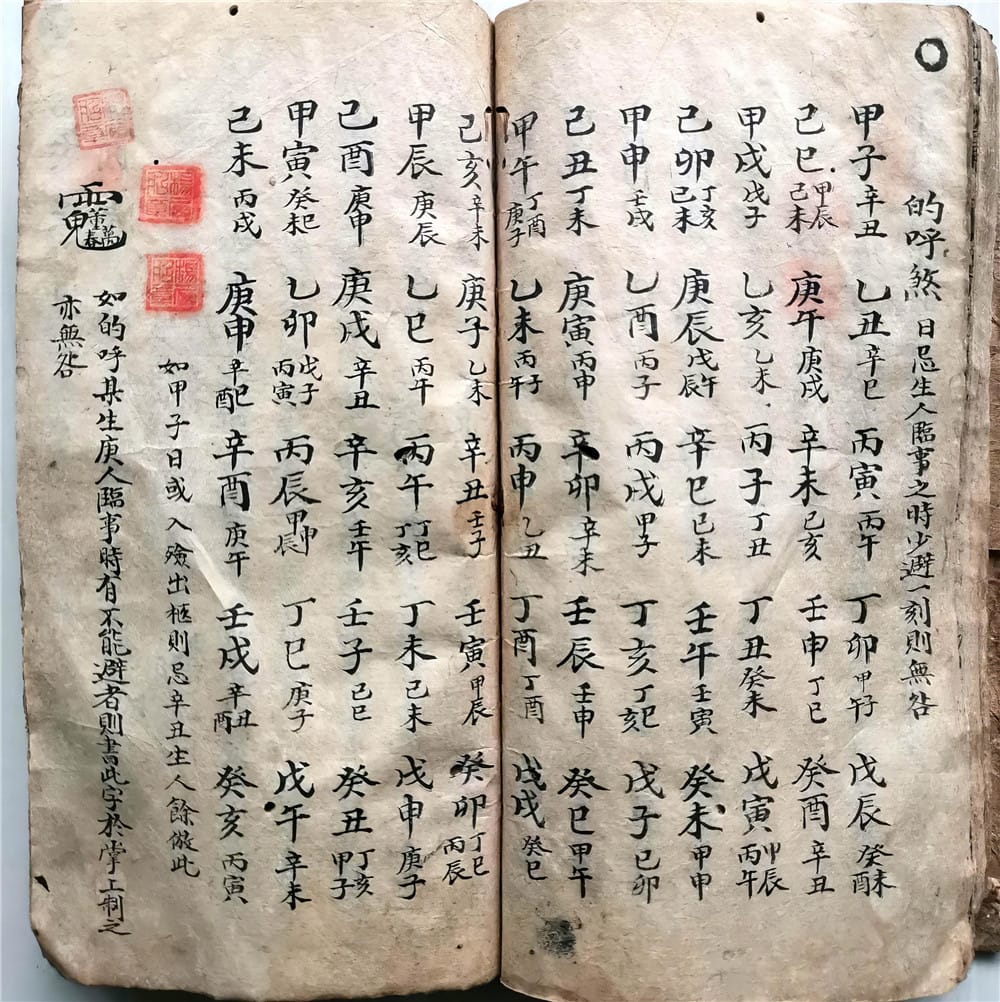 的呼煞 日忌生人臨事之時少避一刻則無咎
甲子 辛丑 乙丑 辛巳 丙寅 丙午 丁卯 甲午子 戊辰 癸未酉
己巳 甲辰己未 庚午 庚戌 辛未 己亥 壬申 丁巳 癸酉 辛丑
甲戌 戊子 乙亥 乙未 丙子 丁丑 丁丑 癸未 戊寅 甲辰丙午
己卯 丁亥己未 庚辰 戊午辰 辛巳 己未 壬午 壬寅 癸未 甲申
甲申 壬戌 乙酉 丙子 丙戌 甲子 丁亥 丁巳亥 戊子 己卯
己丑 丁未 庚寅 丙申 辛卯 辛未 壬辰 壬申 癸巳 甲午
甲午 丁酉庚子 乙未 丙子午 丙申 乙丑 丁酉 丁酉 戊戌 癸巳
己亥 辛未 庚子 乙未 辛丑 壬子 壬寅 甲辰 癸卯 丁巳丙辰
甲辰 庚辰 乙巳 丙午 丙午 丁巳丁亥 丁未 己未 戊申 庚子
己酉 庚申 庚戌 辛丑 辛亥 壬午 壬子 己巳 癸丑 丁亥甲子
甲寅 癸未巳 乙卯 戊子丙寅 丙辰 甲申辰 丁巳 庚子 戊午 辛未
己未 丙戌 庚申 辛巳酉 辛酉 庚午 壬戌 辛丑酉 癸亥 丙寅
如甲子日或入殮出柩則忌辛丑生人餘倣此
如的呼某生庚人臨事時有不能避者則書此字於掌上制之
亦無咎